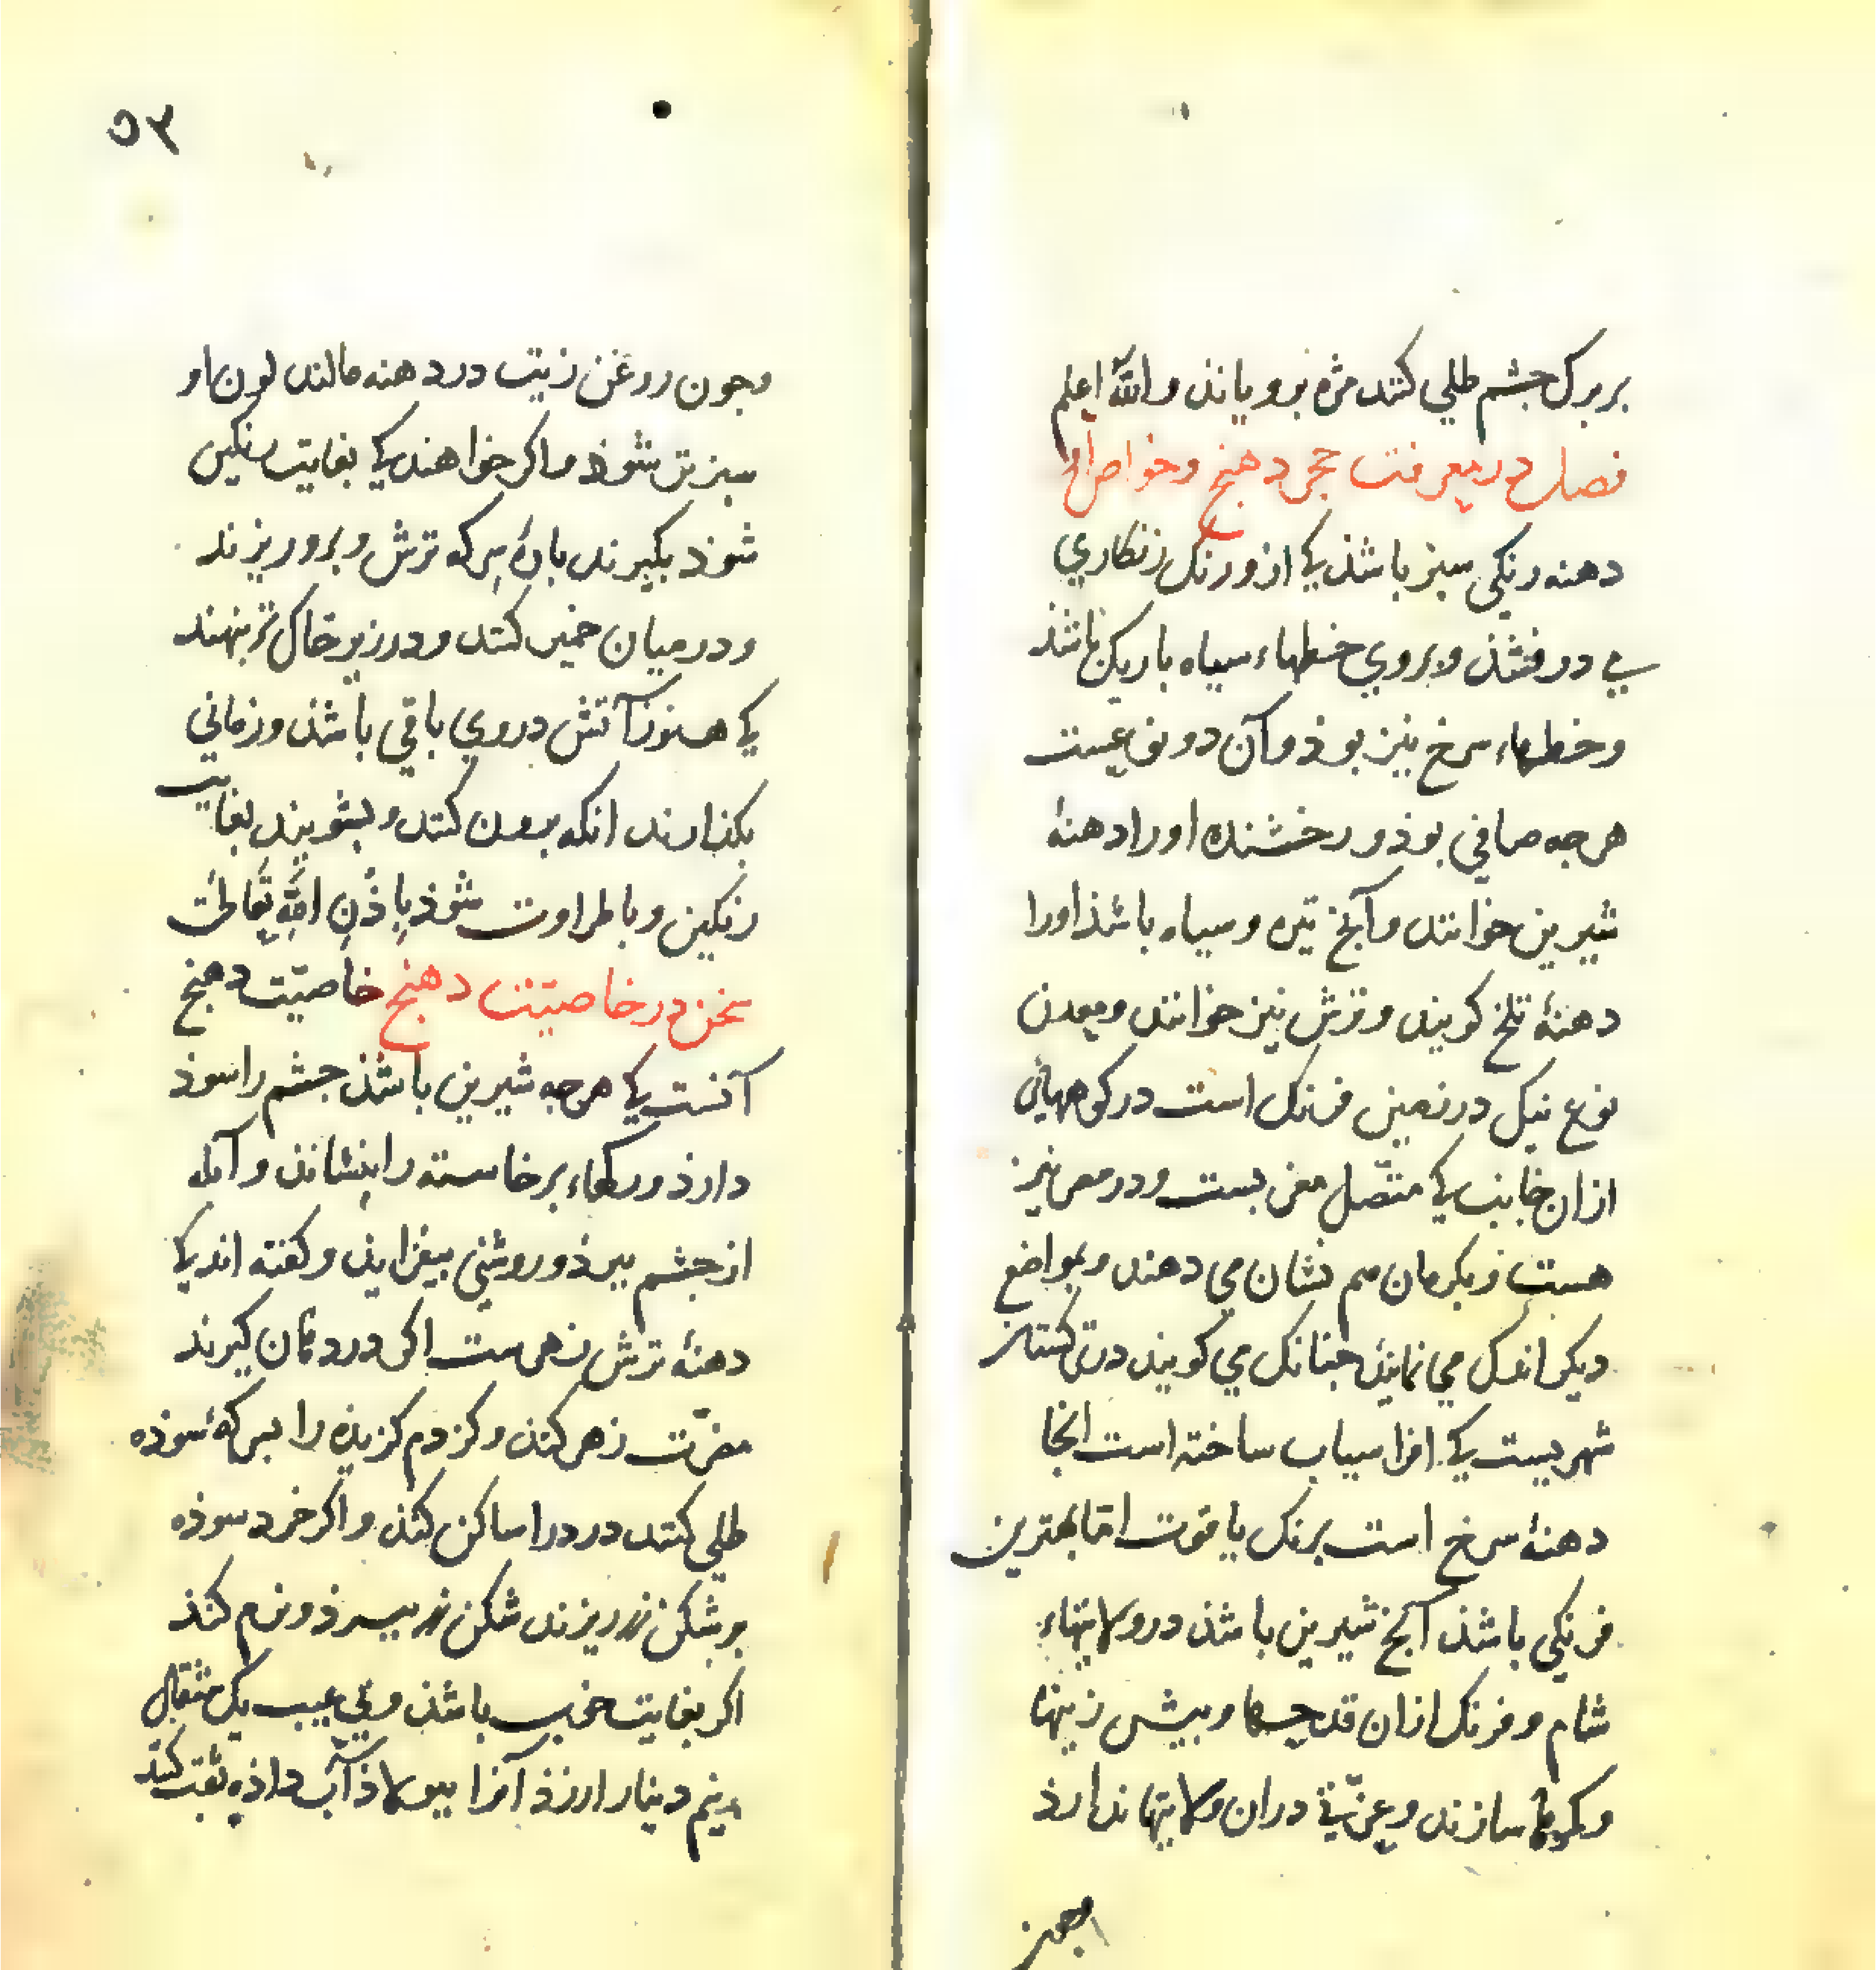 بربرک جشم طلی کنند مژه برویاند والله اعلم
فصل در معرفت حجر دهنج وخواص او
دهنه رنکی سبز باشذ کی ازو رنک زنکاری
می درفشذ وبروی خطهاء سیاه باریک باشذ
وخطهاء سرخ نیز بوذ وآن دو نوعیست
هرجه صافی بوذ و رخشنده اورا دهنهٔ
شیرین خوانند وآنج تیره و سیاه باشذ اورا
دهنهٔ تلخ کویند وترش نیز خوانند ومعدن
نوع نیک در زمین فرنک است در کوههائی
ازان جانب کی متّصل مغربست ودر مصر نیز
هست وبکرمان هم نشان می دهند وبمواضع
دیکر اندک می نمایند جنانک می کویند در ترکستان
شهریست کی افراسیاب ساخته است انجا
دهنهٔ سرخ است برنک یاقوت امّا بهترین
فرنکی باشذ آنج شیرین باشذ در ولایتهاء
شام و فرنک ازان قدحها و بیش زینها
وکمرها سازند وعزّتی دران ولایتها ندارذ
وجون
۵۲
وجون روغن زیت در دهنه مالند لون او
سبزتر شوذ واکر خواهند کی بغایت رنکین
شوذ بکیرند بارهٔ سرکه ترش وبرو ریزند
ودر میان خمیر کنند ودر زیر خاک تر بنهند
کی هنوز آتش دروی باقی باشذ وزمانی
بکذارند انکه برون کنند وبشویند بغایت
رنکین وباطراوت شوذ باذن الله تعالی
سخن در خاصیّت دهنج خاصیّت دهنج
آنست کی هرجه شیرین باشذ جشم را سوذ
دارذ ورکهاء برخاسته را بنشاند وآبله
از جشم ببرذ وروشنی بیفزاید وکفته اند کی
دهنهٔ ترش زهرست اکر در دهان کیرند
مضرّت زهر کند وکزدم کزیده را بسرکهٔ سوذه
طلی کنند درد را ساکن کند واکر خرد سوذه
بر شکن زر ریزند شکن زر ببرذ ونرم کند
اکر بغایت خوب باشذ وبی عیب یک مثقال
بنیم دینار ارزذ آنرا ببولاذ آب داذه ثقب کنند